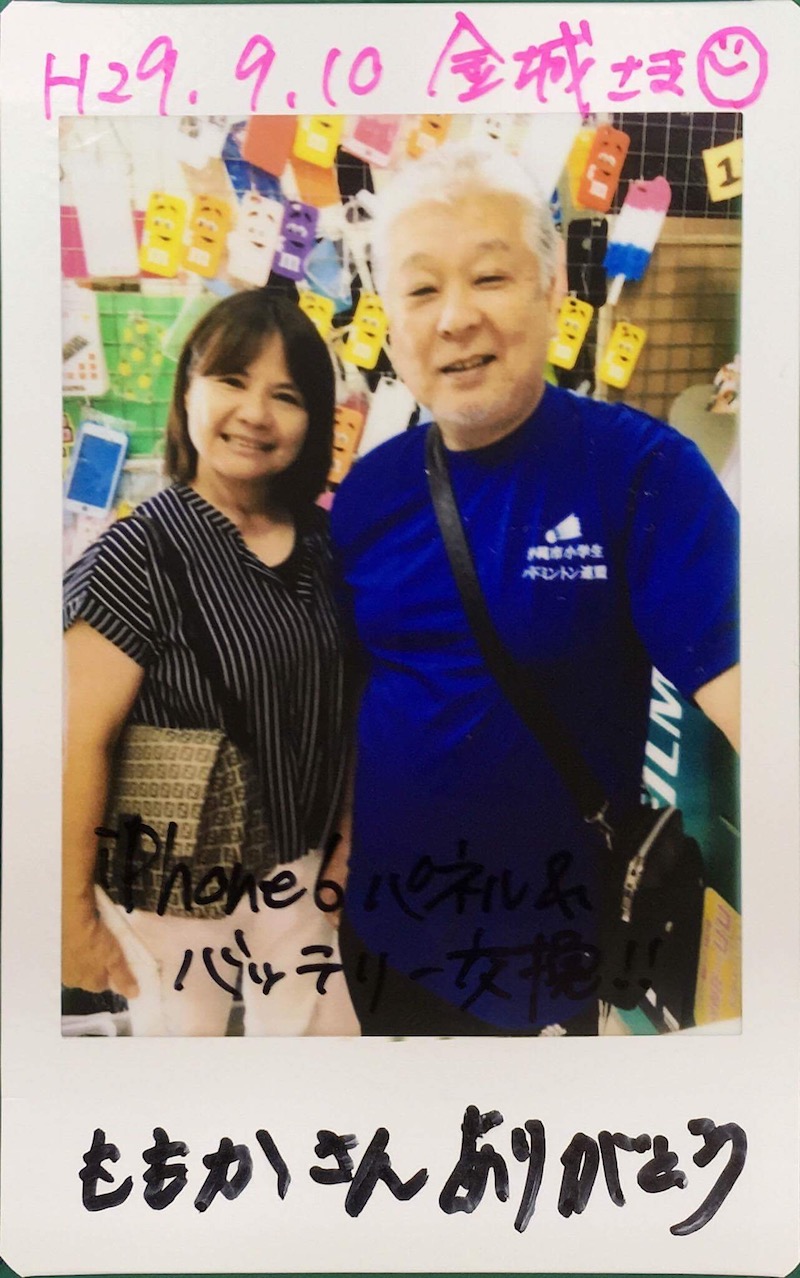 H29.9.10 金城さま
1
沖縄市小学生
バドミントン連盟
ILM
iPhone6 パネル&
バッテリー交換!!
ももかさん ありがとう